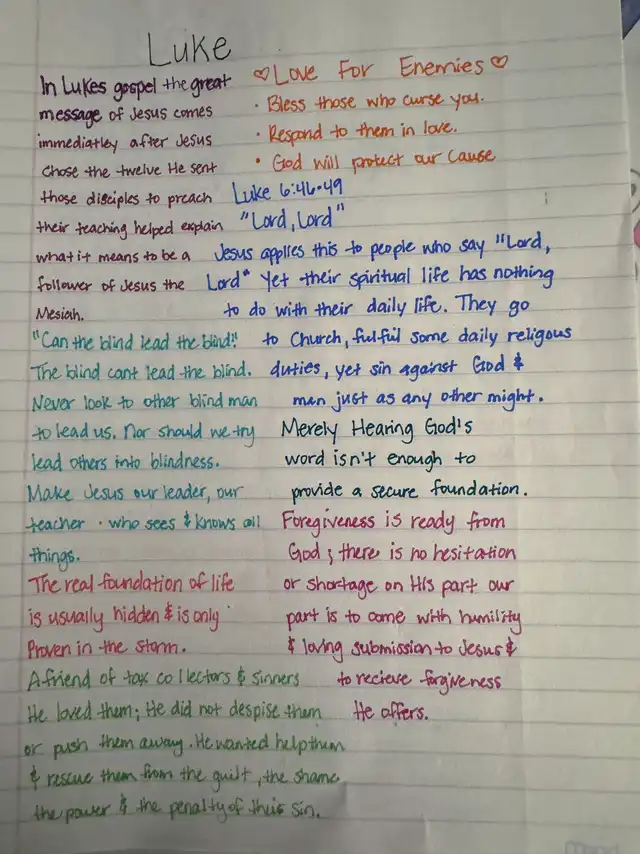 Luke
In Lukes gospel the great
message of Jesus comes
immediatley after Jesus
chose the twelve He sent
those disciples to preach
their teaching helped explain
what it means to be a
follower of Jesus the
Mesiah.
"Can the blind lead the blind?"
The blind cant lead the blind.
Never look to other blind man
to lead us. Nor should we try
lead others into blindness.
Make Jesus our leader, our
teacher · who sees & knows all
things.
The real foundation of life
is usually hidden & is only
Proven in the storm.
A friend of tax collectors & sinners
He loved them; He did not despise them
or push them away. He wanted help them
& rescue them from the guilt, the shame
the power & the penalty of their sin.
♡ Love For Enemies ♡
· Bless those who curse you.
· Respond to them in love.
· God will protect our cause
Luke 6:46-49
"Lord, Lord"
Jesus applies this to people who say "Lord,
Lord" Yet their spiritual life has nothing
to do with their daily life. They go
to Church, fulful some daily religous
duties, yet sin against God &
man just as any other might.
Merely Hearing God's
word isn't enough to
provide a secure foundation.
Foregiveness is ready from
God; there is no hesitation
or shortage on His part our
part is to come with humility
& loving submission to Jesus &
to recieve forgiveness
He offers.